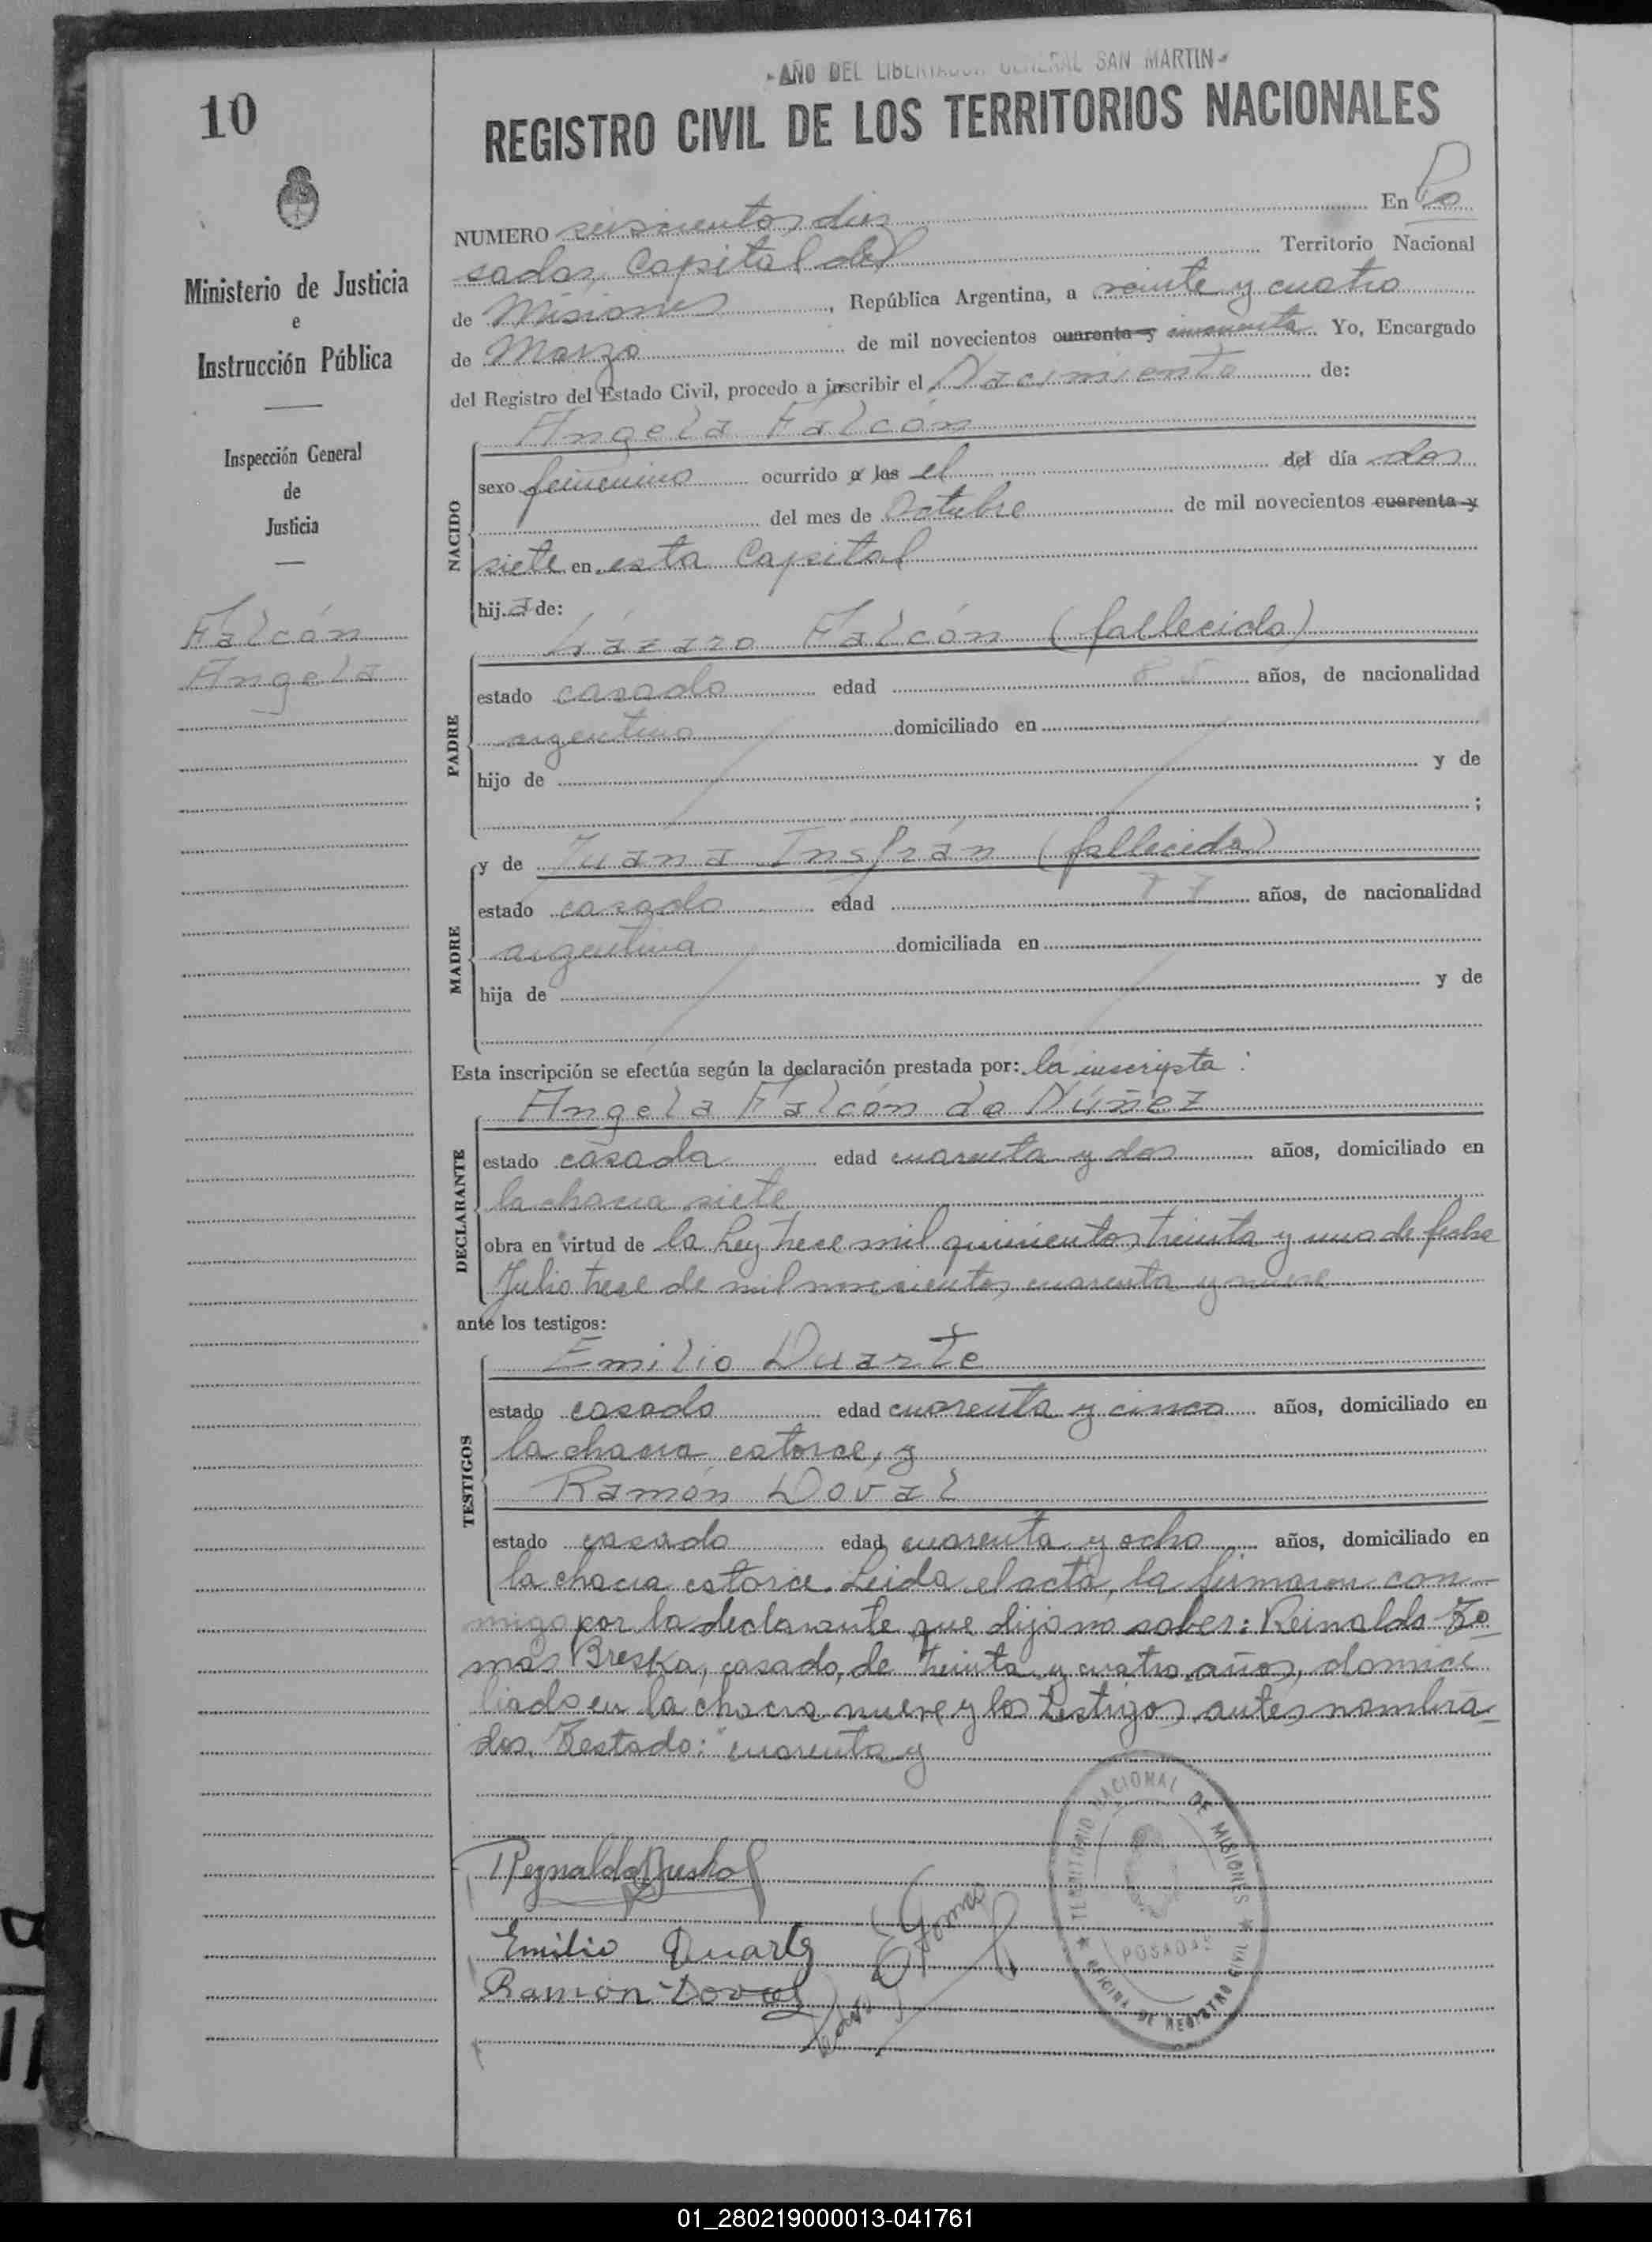 - AÑO DEL LIBERTADOR GENERAL SAN MARTIN -
10
REGISTRO CIVIL DE LOS TERRITORIOS NACIONALES
NUMERO seiscientos diez En Po
sadas, Capital del Territorio Nacional
de Misiones, República Argentina, a veinte y cuatro
de Marzo de mil novecientos cuarenta y cincuenta Yo, Encargado
del Registro del Estado Civil, procedo a inscribir el Nacimiento de:
Ministerio de Justicia
e
Instrucción Pública
Inspección General
de
Justicia
Falcón
Angela
Angela Falcón
NACIDO
sexo femenino ocurrido a las el del día dos
del mes de Octubre de mil novecientos cuarenta y
siete en esta Capital
hija de:
Lázaro Falcón (fallecido)
PADRE
estado casado edad 85 años, de nacionalidad
argentino domiciliado en
hijo de y de
;
y de Juana Insfrán (fallecida)
MADRE
estado casada edad 77 años, de nacionalidad
argentina domiciliada en
hija de y de
Esta inscripción se efectúa según la declaración prestada por: la inscripta:
Angela Falcón de Núñez
DECLARANTE
estado casada edad cuarenta y dos años, domiciliado en
la chacra siete
obra en virtud de la Ley trece mil quinientos treinta y uno de fecha
Julio trece de mil novecientos cuarenta y nueve
ante los testigos:
Emilio Duarte
TESTIGOS
estado casado edad cuarenta y cinco años, domiciliado en
la chacra catorce, y
Ramón Doval
estado casado edad cuarenta y ocho años, domiciliado en
la chacra catorce. Leida el acta, la firmaron con-
migo por la declarante que dijo no saber: Reinaldo To
más Breska, casado, de treinta y cuatro años, domici
liado en la chacra nueve y los testigos antes nombra
dos. Testado: "cuarenta y
Emilio Duarte
Ramón Doval
TERRITORIO NACIONAL DE MISIONES
POSADAS
OFICINA DE REGISTRO CIVIL
01_280219000013-041761